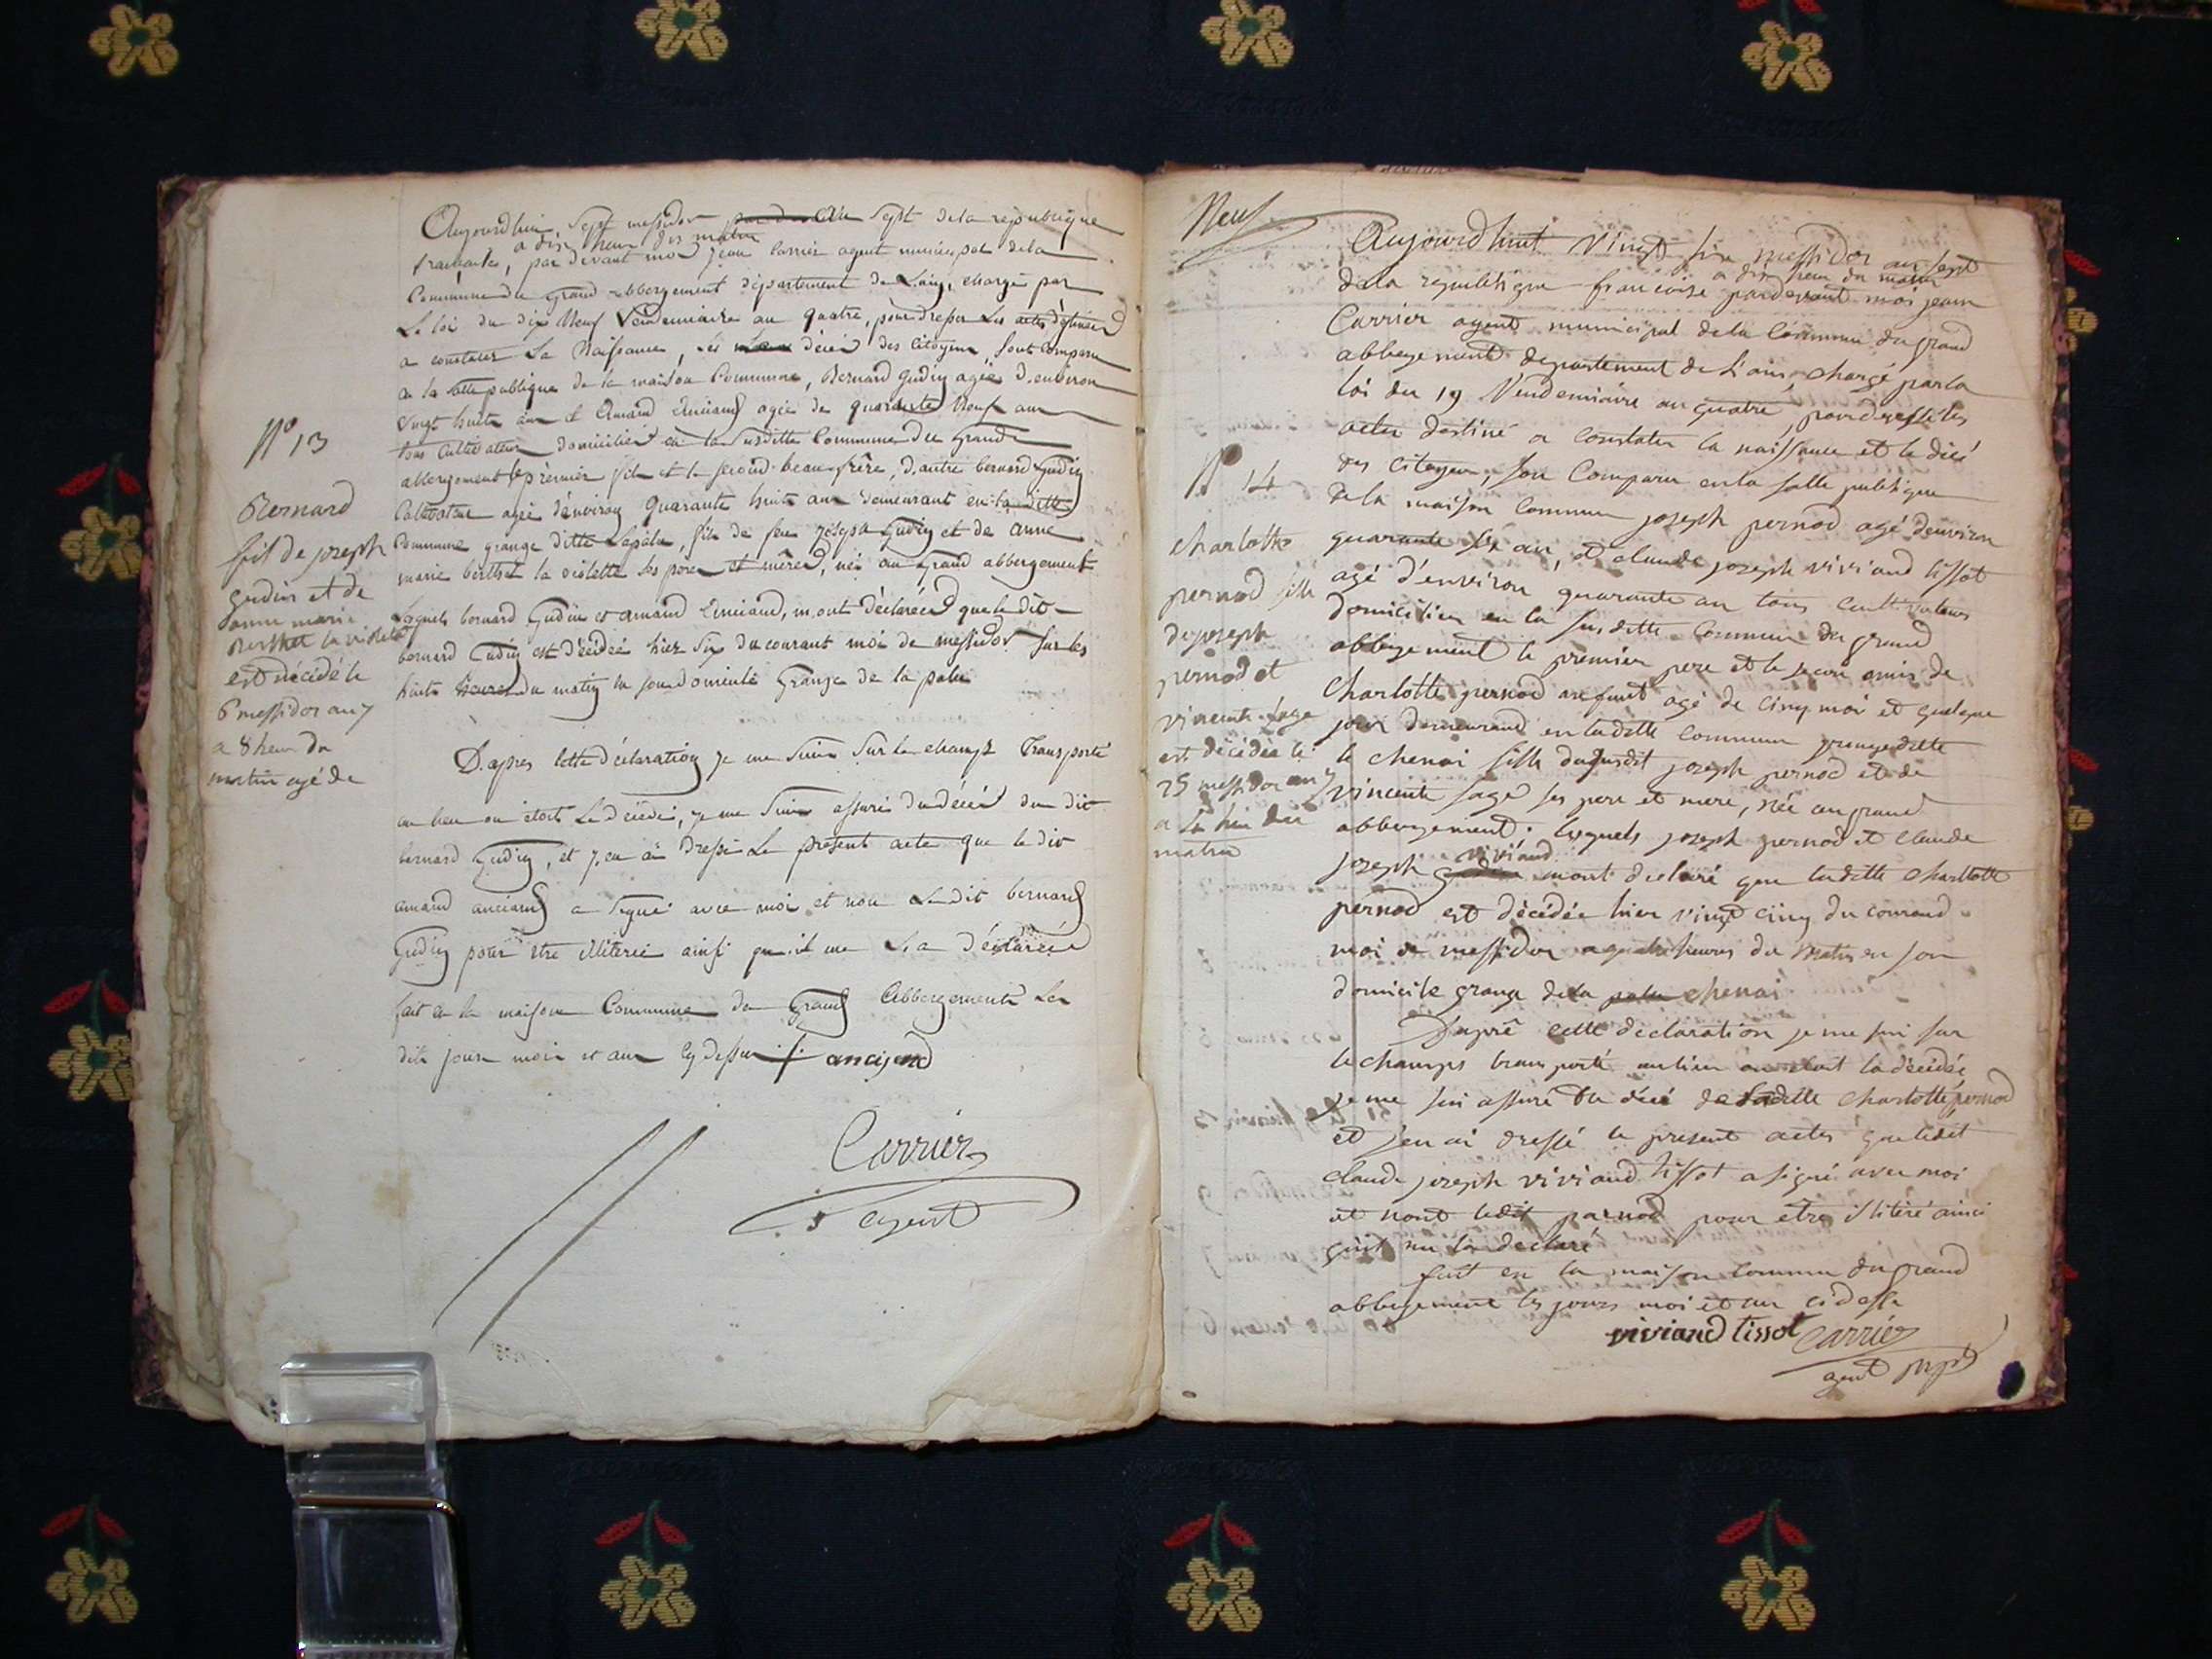 Aujourdhui, Sept messidor an Sept dela republique
a dix heur du matin
francaise, par devant moi jean Carrier agent municipal dela
Commune du grand abbergement departement de Lain, chargé par
La loi du dix Neuf Vendemiaire an quatre, pour dresser Les actes destinés
a constater La Naissance, les décès des Citoyens, Sont Comparu
a la salle publique de la maison Commune, Bernard gudin agée d'environ
vingt huit ans et Amand Anciand agée de quarante Neuf ans
tous Cultivateurs domicilies en la Susditte Commune du grand
abbergement le premier fils et le second beau frère, d'autre bernard Gudin
Cultivateur agée d'environ Quarante huit ans demeurant en la ditte
Commune grange ditte Lapalu, fils de feu joseph Gudin et de anne
marie berthet la violette Ses peres et mères, née au grand abbergement
Lesquels bernard Gudin et amand anciand, m'ont déclarées que le dit
bernard Gudin est décédée hier Six du courant moi de messidor Sur les
huits heures du matin en son domicile Grange de la palu
D'apres cette déclaration je me Suis Sur le champs Transporté
au lieu ou étoit Le décédé, je me Suis assuré du décès du dit
bernard Gudin, et j'en ai Dressé Le présent acte que le dit
amand anciand a Signé avec moi et non Le dit bernard
Gudin pour être illiteré ainsi qu'il me L'a déclarée
fait a la maison Commune du Grand Abbergement Les
dits jour moi et an cy dessus anciand
Carrier
agent
N° 13
Bernard
fils de joseph
gudin et de
anne marie
Berthet la violette
est décédé le
6 messidor an 7
a 8 heur du
matin agé de
Neuf
Aujourdhuit vingt six messidor an sept
a dix heur du matin
dela republique francoise pardevant moi jean
Carrier agent municipal dela Commune du grand
abbergement departement de L'ain, chargé par la
loi du 19 Vendemiaire an quatre, pour dresser les
actes destiné a constater la naissance et le décé
des Citoyen, son Comparu en la salle publique
dela maison Commune joseph pernod agé d'environ
quarante six an, et claude joseph viviand tissot
agé d'environ quarante an tous cultivateurs
domicilies en la susditte Commune du grand
abbergement le premier pere et le second amis de
charlotte pernod agé de cinq moi et quelque
jour demeurand en laditte Commune grange ditte
le chenai fille dususdit joseph pernod et de
vincente sage ses pere et mere, née au grand
abbergement. lesquels joseph pernod et Claude
viviand
joseph mont declaré que laditte charlotte
pernod est décédée hier vingt cinq du courand
moi de messidor a quatre heures du matin en son
domicile grange dela palu chenai
Dapré cette declaration je me sui sur
le champs transporté au lieu ou etoit la décédée
je me sui assuré du décé de ladille charlotte pernod
et j'en ai dressé le present actes que ledit
claude joseph viviand tissot a signé avec moi
et nont ledit pernod pour etre illiteré ainci
quil me la declaré
fait en la maison commune du grand
abbergement les jours moi et an ci dessu
viviand tissot Carrier
agent
N° 14
charlotte
pernod fille
de joseph
pernod et
vincente sage
est décédée le
25 messidor an 7
a 4 heu du
matin